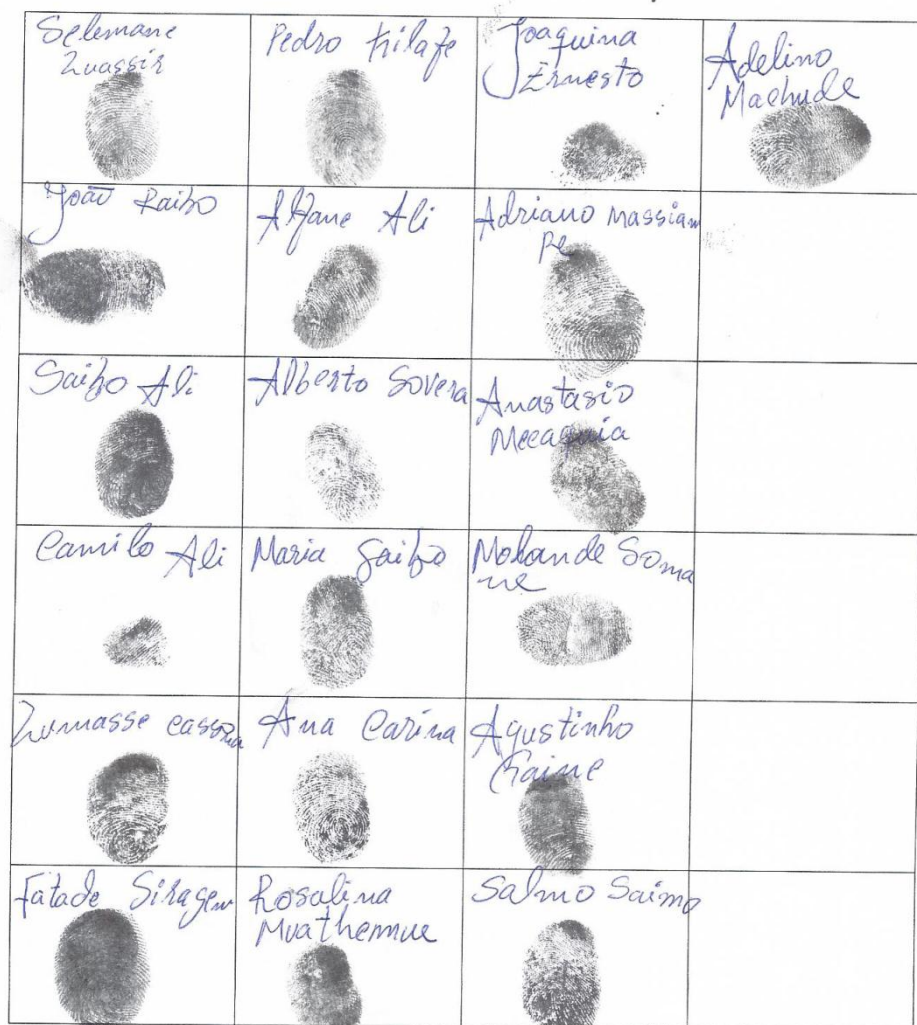 Selemane
Zuassir
Pedro Kilafe
Joaquina
Ernesto
Adelino
Machude
João Raibo
Alfane Ali
Adriano Massiam
pe
Saibo Ali
Alberto Sovera
Anastasio
Camilo Ali
Maria Saibo
Molande Soma
ne
Zumasse
Ana Carina
Agustinho
Fatade
Rosalina
Muathemue
Salmo Saimo